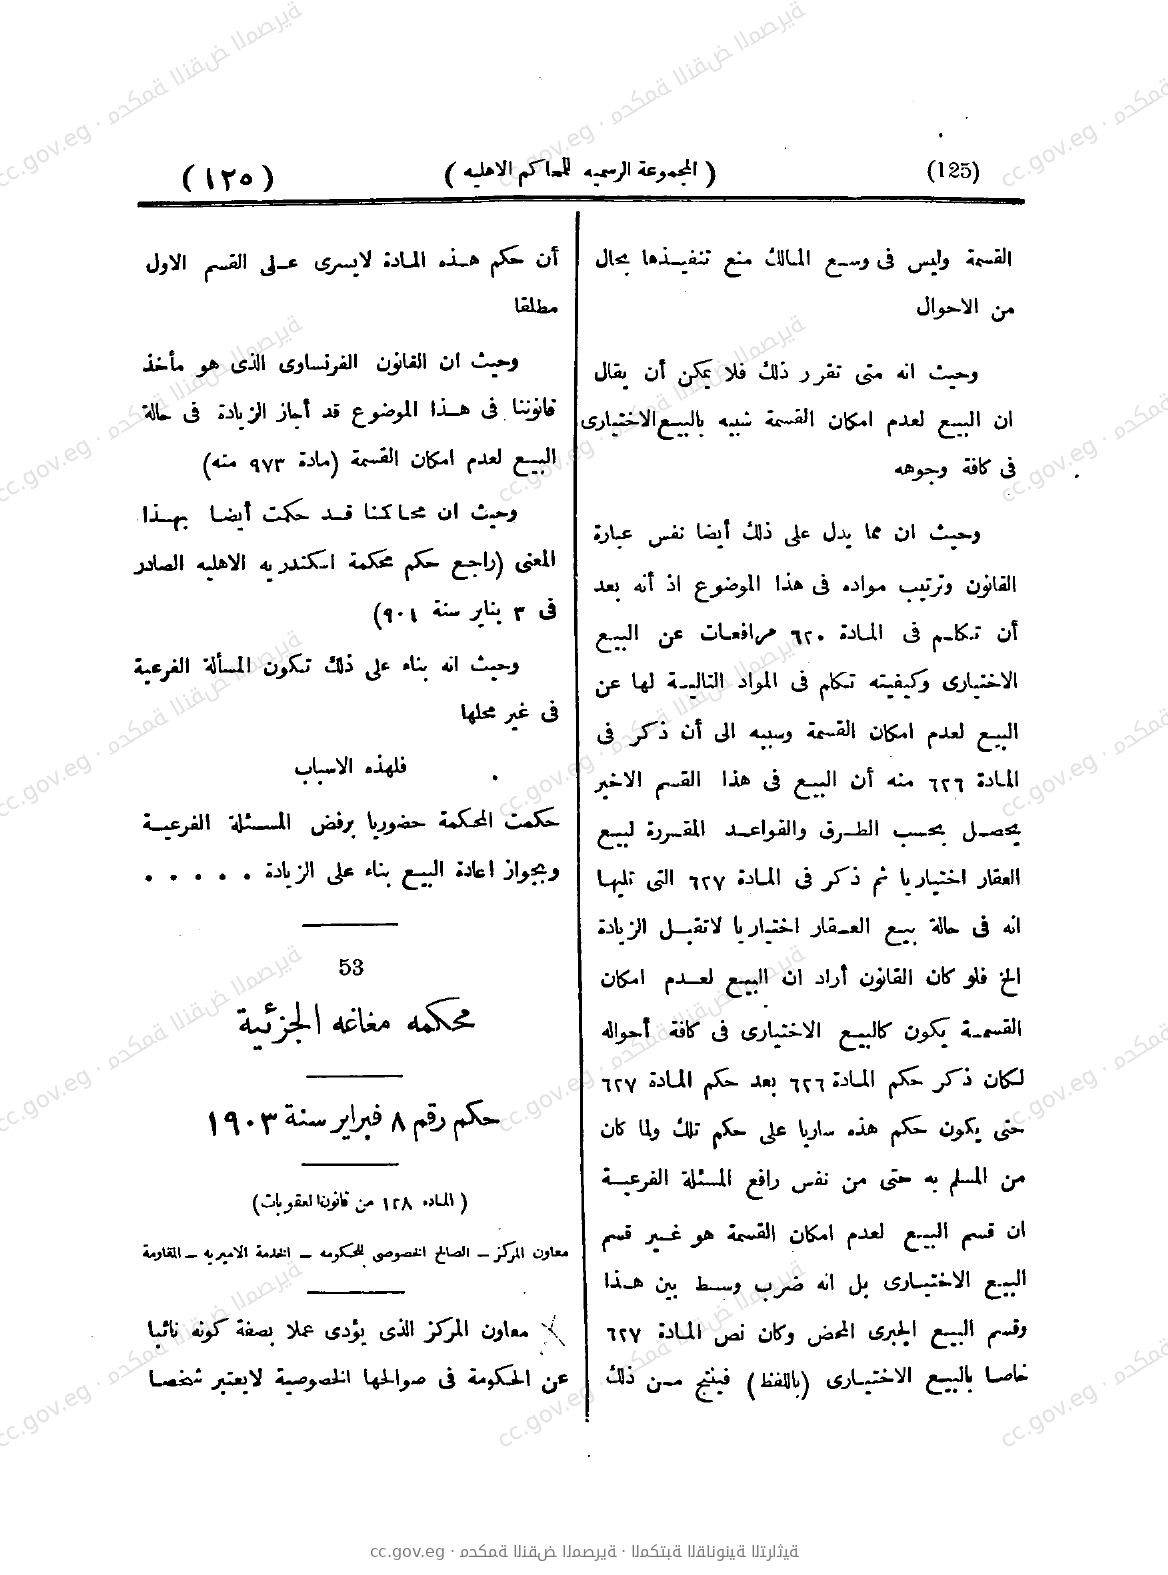 (125)
( المجموعة الرسميه للمحاكم الاهليه )
( ١٢٥ )
القسمة وليس فى وسع المالك منع تنفيذها بحال
من الاحوال
وحيث انه متى تقرر ذلك فلا يمكن أن يقال
ان البيع لعدم امكان القسمة شبيه بالبيع الاختيارى
فى كافة وجوهه
وحيث ان مما يدل على ذلك أيضا نفس عبارة
القانون وترتيب مواده فى هذا الموضوع اذ أنه بعد
أن تكلم فى المادة ٦٢٠ مرافعات عن البيع
الاختيارى وكيفيته تكلم فى المواد التالية لها عن
البيع لعدم امكان القسمة وسببه الى أن ذكر فى
المادة ٦٢٦ منه أن البيع فى هذا القسم الاخير
يحصل بحسب الطرق والقواعد المقررة لبيع
العقار اختياريا ثم ذكر فى المادة ٦٢٧ التى تليها
انه فى حالة بيع العقار اختياريا لاتقبل الزيادة
الخ فلو كان القانون أراد ان البيع لعدم امكان
القسمة يكون كالبيع الاختيارى فى كافة أحواله
لكان ذكر حكم المادة ٦٢٦ بعد حكم المادة ٦٢٧
حتى يكون حكم هذه ساريا على حكم تلك ولما كان
من المسلم به حتى من نفس رافع المسئلة الفرعية
ان قسم البيع لعدم امكان القسمة هو غير قسم
البيع الاختيارى بل انه ضرب وسط بين هذا
وقسم البيع الجبرى المحض وكان نص المادة ٦٢٧
خاصا بالبيع الاختيارى (باللفظ) فينتج من ذلك
أن حكم هذه المادة لايسرى على القسم الاول
مطلقا
وحيث ان القانون الفرنساوى الذى هو مأخذ
قانوننا فى هذا الموضوع قد أجاز الزيادة فى حالة
البيع لعدم امكان القسمة (مادة ٩٧٣ منه)
وحيث ان محاكمنا قد حكمت أيضا بهذا
المعنى (راجع حكم محكمة اسكندريه الاهليه الصادر
فى ٣ يناير سنة ٩٠١)
وحيث انه بناء على ذلك تكون المسألة الفرعية
فى غير محلها
فلهذه الاسباب
حكمت المحكمة حضوريا برفض المسئلة الفرعية
وبجواز اعادة البيع بناء على الزيادة . . . . .
53
محكمه مغاغه الجزئية
حكم رقم ٨ فبراير سنة ١٩٠٣
( الماده ١٢٨ من قانون العقوبات)
معاون المركز – الصالح الخصوصى للحكومه – الخدمة الاميريه – المقاومة
معاون المركز الذى يؤدى عملا بصفة كونه نائبا
عن الحكومة فى صوالحها الخصوصية لايعتبر شخصا
cc.gov.eg · محكمة النقض المصرية · المكتبة القانونية التراثية